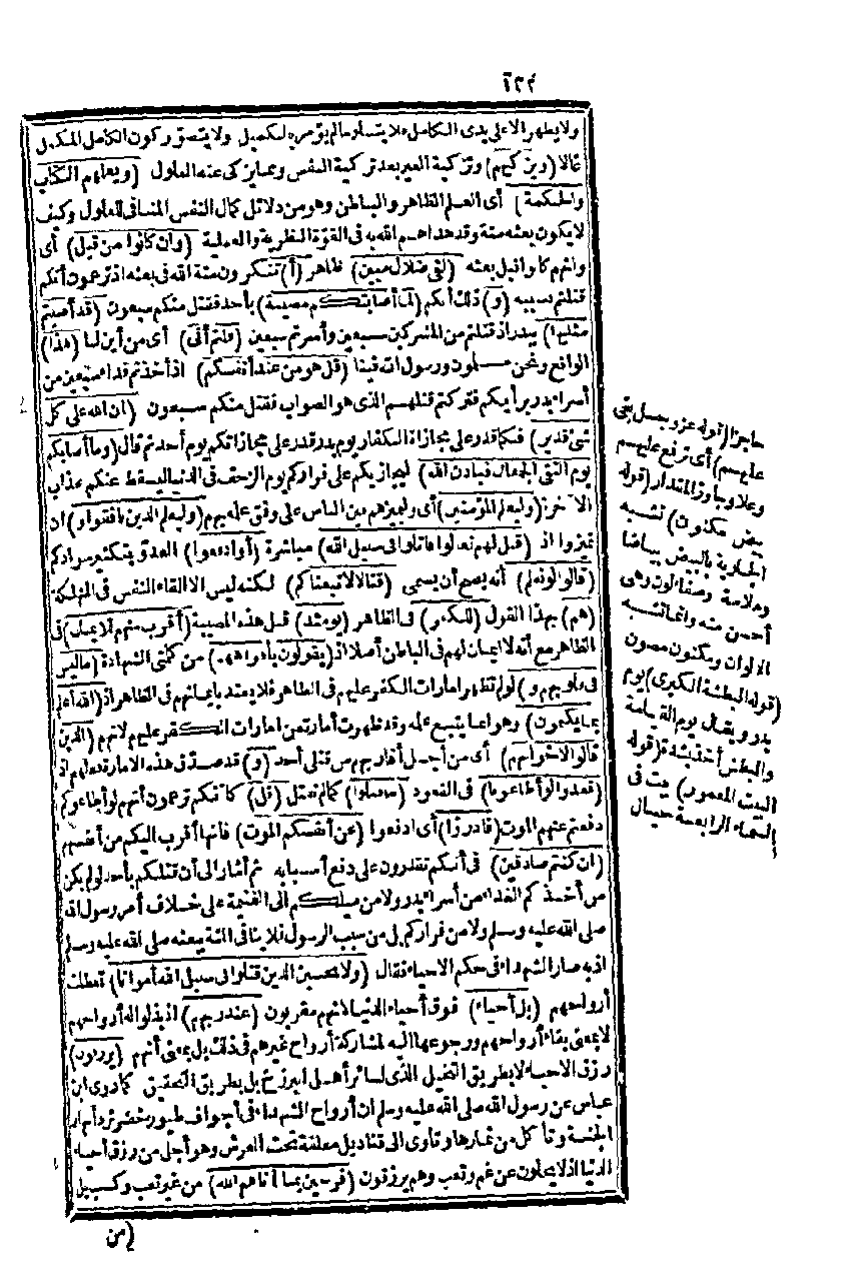 ١٣٣
ولا يظهر الا على يدى الكامل ولا يتسلم ما لم يؤمر به لتكميل ولا يتصور كون الكامل المكمل
غالا (ويزكيهم) وتزكية الغير بعد تزكية النفس وعما يزكى عنه الغلول (ويعلمهم الكتاب
والحكمة) أى العلم الظاهر والباطن وهو من دلائل كمال النفس المنافى للغلول وكيف
لا يكون بعثه منة وقد هداهم الله به فى القوة النظرية والعملية (وان كانوا من قبل) أى
وانهم كانوا قبل بعثه (لفى ضلال مبين) ظاهر (أ) تنكرون منة الله فى بعثه اذ تزعمون أنكم
قتلتم بسببه (و) ذلك أنكم (لما أصابتكم مصيبة) بأحد فقتل منكم سبعون (قد أصبتم
مثليها) ببدر اذ قتلتم من المشركين سبعين وأسرتم سبعين (قلتم أنى) أى من أين لنا (هذا)
الواقع ونحن مسلمون ورسول الله فينا (قل هو من عند أنفسكم) اذ أخذتم فداء سبعين من
أسراء بدر برأيكم فتركتم قتلهم الذى هو الصواب فقتل منكم سبعون (ان الله على كل
شئ قدير) فكما قدر على مجازاة الكفار يوم بدر قدر على مجازاتكم يوم أحد ثم قال (وما أصابكم
يوم التقى الجمعان فباذن الله) ليجازيكم على فراركم يوم الزحف فى الدنيا ليسقط عنكم عذاب
الآخرة (وليعلم المؤمنين) أى وليميزهم بين الناس على وفق علمه بهم (وليعلم الذين نافقوا) ان
تميزوا اذ (قيل لهم تعالوا قاتلوا فى سبيل الله) مباشرة (أو ادفعوا) العدو بتكثير سوادكم
(قالوا لو نعلم) أنه يصح أن يسمى (قتالا لاتبعناكم) لكنه ليس الا القاء النفس فى التهلكة
(هم) بهذا القول (للكفر) فى الظاهر (يومئذ) قبل هذه المصيبة (أقرب منهم للايمان) فى
الظاهر مع أنه لا ايمان لهم فى الباطن أصلا اذ (يقولون بأفواههم) من كلمتى الشهادة (ما ليس
فى قلوبهم و) لو لم تظهر امارات الكفر عليهم فى الظاهر فلا يعتد بايمانهم فى الظاهر اذ (الله أعلم
بما يكتمون) وهو انما يتبع علمه وقد ظهرت أمارته من امارات الكفر عليهم لانهم (الذين
قالوا لاخوانهم) أى من أجل أقاربهم من قتلى أحد (و) قد صدق هذه الامارة فعلهم اذ
(قعدوا لو أطاعونا) فى القعود (ما قتلوا) كما لم نقتل (قل) كأنكم تزعمون أنهم لو أطاعوكم
دفعتم عنهم الموت (فادرؤا) أى ادفعوا (عن أنفسكم الموت) فانها أقرب اليكم من أنفسهم
(ان كنتم صادقين) فى أنكم تقدرون على دفع أسبابه ثم أشار الى أن قتلكم بأحد لو لم يكن
من أخذكم الفداء من أسراء بدر ولا من ميلكم الى الغنيمة على خلاف أمر رسول الله
صلى الله عليه وسلم ولا من فراركم بل من سبب الرسول فلا ينافى المنة ببعثه صلى الله عليه وسلم
اذ به صار الشهداء فى حكم الاحياء فقال (ولا تحسبن الذين قتلوا فى سبيل الله أمواتا) تعطلت
أرواحهم (بل أحياء) فوق أحياء الدنيا لانهم مقربون (عند ربهم) اذ بذلوا له أرواحهم
لا بمعنى بقاء أرواحهم ورجوعها اليه لمشاركة أرواح غيرهم فى ذلك بل بمعنى أنهم (يرزقون)
رزق الاحياء لا بطريق التخيل الذى لسائر أهل البرزخ بل بطريق التحقيق كما روى ابن
عباس عن رسول الله صلى الله عليه وسلم ان أرواح الشهداء فى أجواف طيور خضر ترد أنهار
الجنة وتأكل من ثمارها وتأوى الى قناديل معلقة تحت العرش وهو أجل من رزق أحياء
الدنيا اذ لا يخلون عن غم وتعب وهم يرزقون (فرحين بما آتاهم الله) من غير تعب وكسب بل
(من
حاجزا (قوله عز وجل بغى
عليهم) أى ترفع عليهم
وعلا وجاوز المقدار (قوله
بيض مكنون) تشبه
الجارية بالبيض بياضا
وملاسة وصفاء لون وهى
أحسن منه وانما تشبه
الالوان ومكنون مصون
(قوله البطشة الكبرى) يوم
بدر ويقال يوم القيامة
والبطش أخذ بشدة (قوله
البيت المعمور) بيت فى
السماء الرابعة حيال